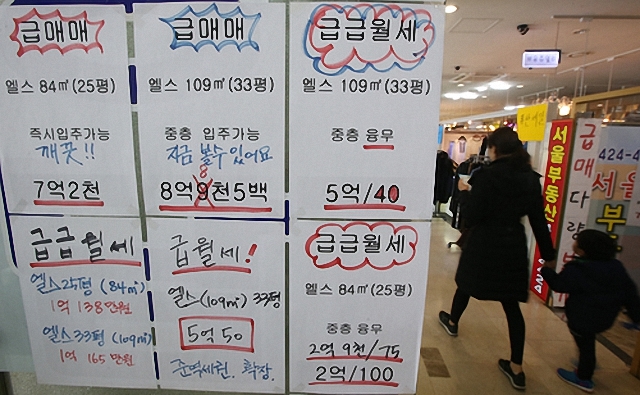 급매매
엘스 84㎡(25평)
즉시입주가능
깨끗!!
7억2천
급매매
엘스 109㎡(33평)
중층 입주가능
지금 볼수있어요
8
8억9천5백
급급월세
엘스 109㎡(33평)
중층 융무
5억/40
급급월세
엘스25평 (84㎡)
1억 138만원
엘스33평 (109㎡)
1억 165만원
급월세!
엘스(109㎡) 33평
5억 50
준역세권. 확장.
급급월세
엘스 84㎡(25평)
중층 융무
2억 9천/75
2억/100
서울부동산
급매다량
424-4
서울
부